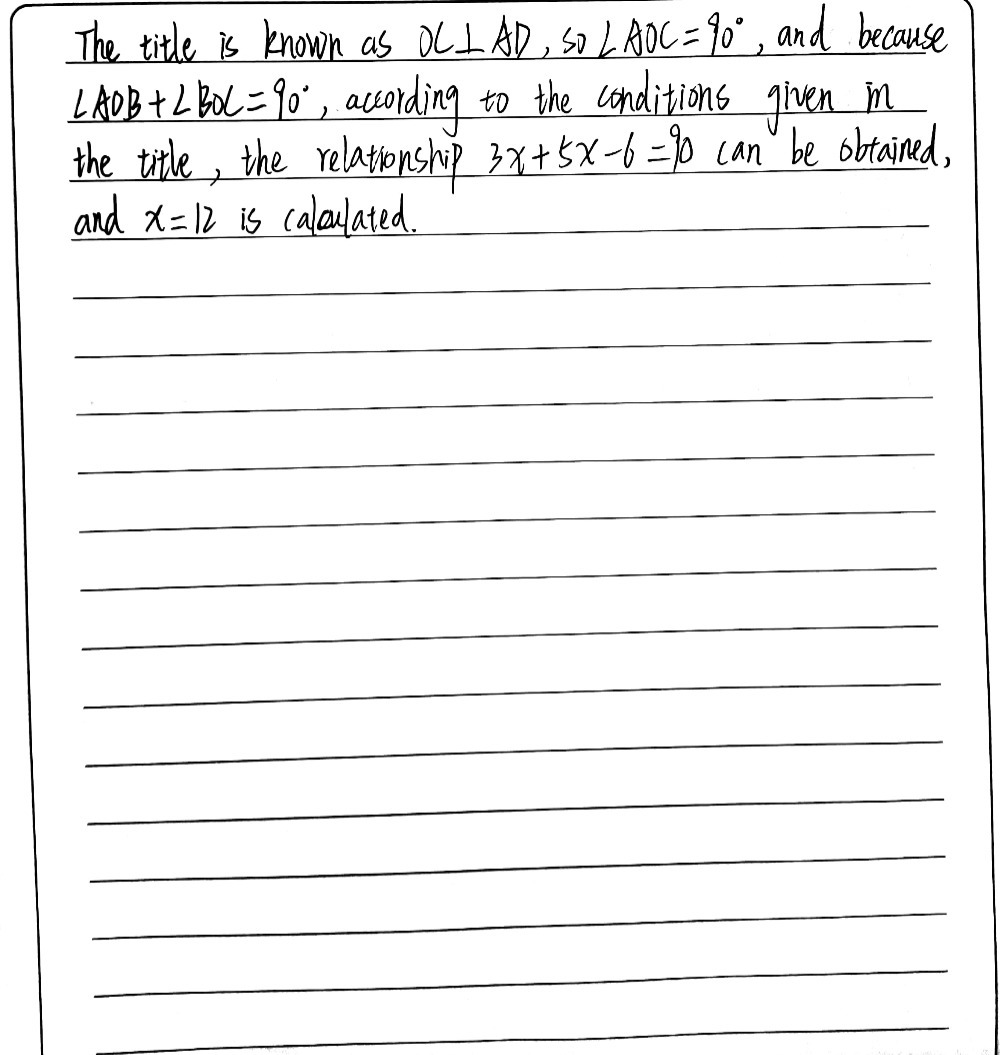 The title is known as OC⊥AD, so ∠AOC=90°, and because
∠AOB+∠BOC=90°, according to the conditions given in
the title, the relationship 3x+5x-6=90 can be obtained,
and x=12 is calculated.